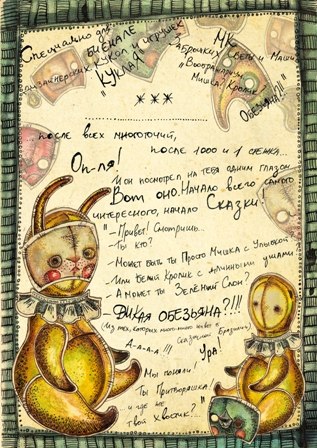 Специально для
БИЕНАЛЕ
дизайнерских кукол и игрушек
КУКЛА!
МК
Светы и Маши
"Вообрази
Мишка? Кролик?
Обезьяна?!!"
***
после всех многоточий,
после 1000 и 1 стежка
Оп-ля!
И он посмотрел на тебя одним глазом
Вот оно. Начало всего самого
интересного, начало Сказки.
"- Привет! Смотришь...
- Ты кто?
- Может быть ты Просто Мишка с Улыбкой
- Или Белый Кролик с длинными ушами
- А может ты Зелёный Слон?
- ДИКАЯ ОБЕЗЬЯНА?!!!
(Из тех, которых много-много живёт в
Сказочной Бразилии)
А-а-а-а!!!
Ура!
Мы поняли!
Ты Притворяшка!
...и где же
твой хвостик?..."